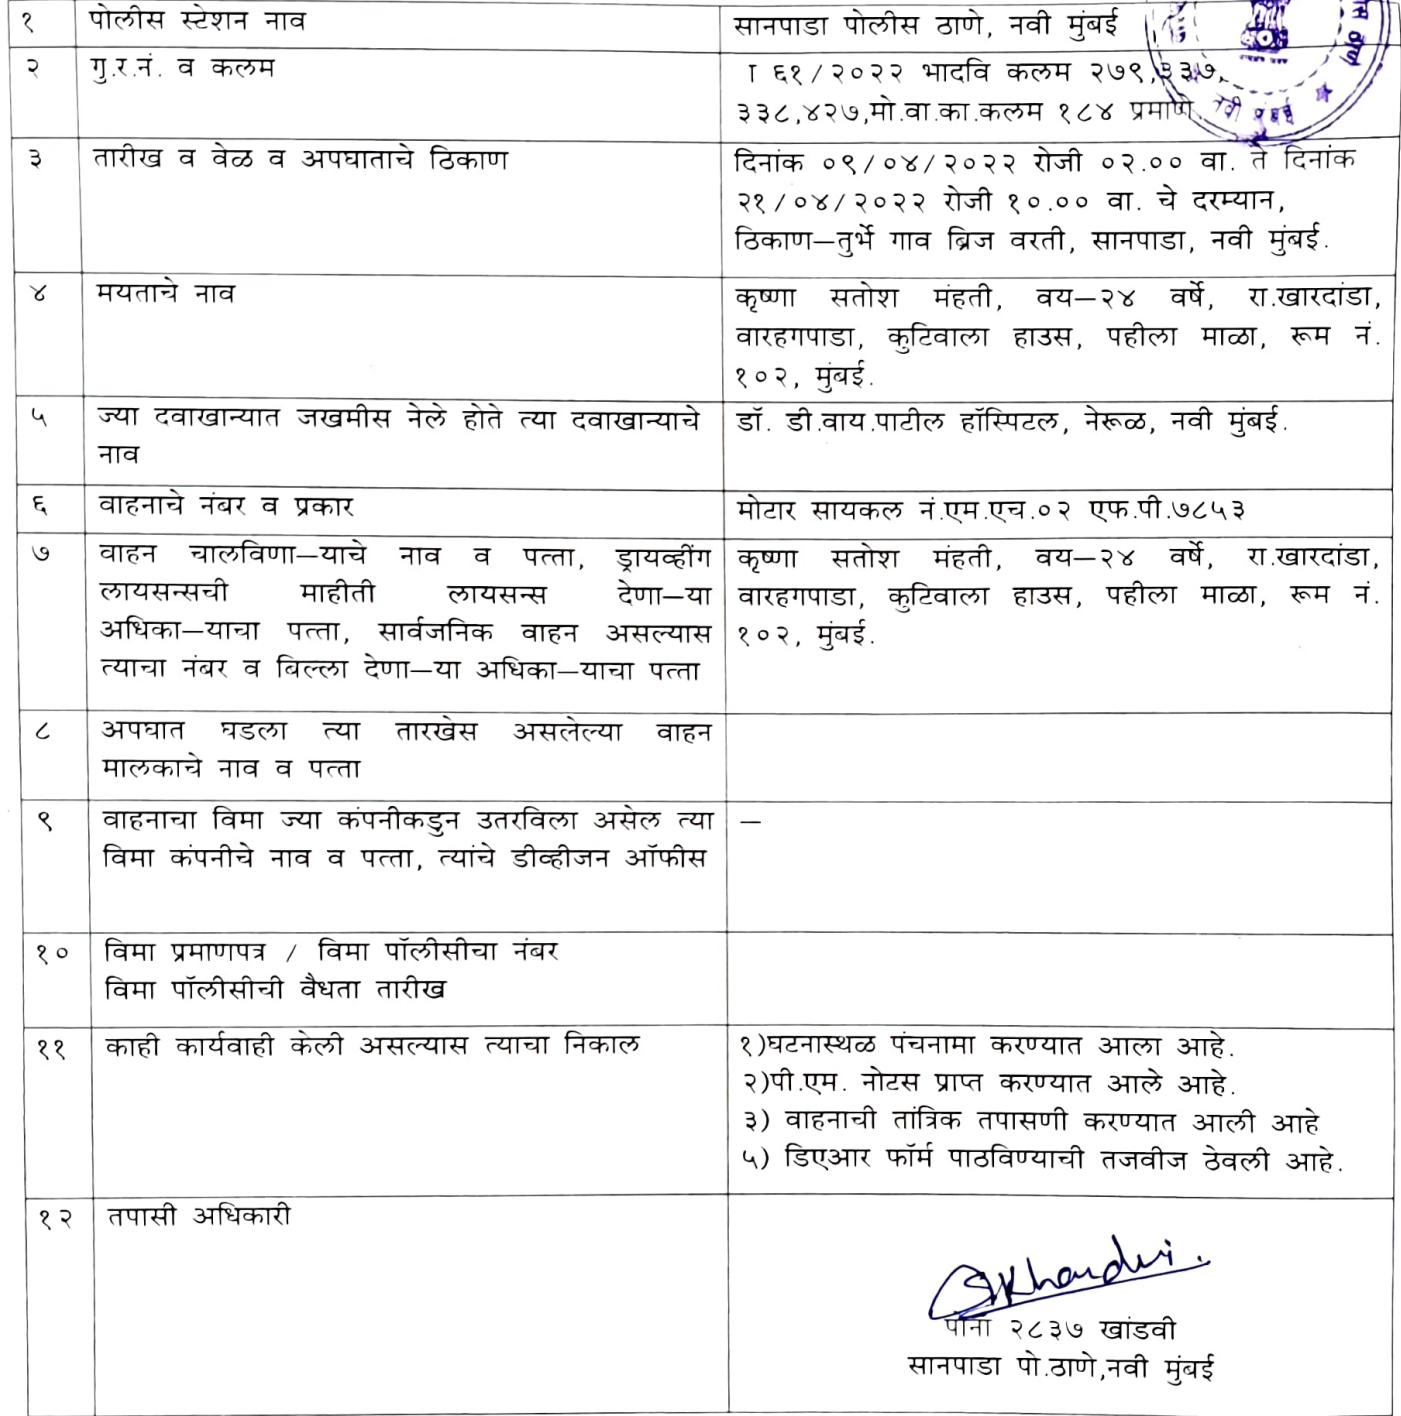 १ पोलीस स्टेशन नाव सानपाडा पोलीस ठाणे, नवी मुंबई
२ गु.र.नं. व कलम I ६१/२०२२ भादवि कलम २७९,३३७,
३३८,४२७,मो.वा.का.कलम १८४ प्रमाणे
नवी मुंबई
३ तारीख व वेळ व अपघाताचे ठिकाण दिनांक ०९/०४/२०२२ रोजी ०२.०० वा. ते दिनांक
२१/०४/२०२२ रोजी १०.०० वा. चे दरम्यान,
ठिकाण—तुर्भे गाव ब्रिज वरती, सानपाडा, नवी मुंबई.
४ मयताचे नाव कृष्णा सतोश मंहती, वय—२४ वर्षे, रा.खारदांडा,
वारहगपाडा, कुटिवाला हाउस, पहीला माळा, रूम नं.
१०२, मुंबई.
५ ज्या दवाखान्यात जखमीस नेले होते त्या दवाखान्याचे डॉ. डी.वाय.पाटील हॉस्पिटल, नेरूळ, नवी मुंबई.
नाव
६ वाहनाचे नंबर व प्रकार मोटार सायकल नं.एम.एच.०२ एफ.पी.७८५३
७ वाहन चालविणा—याचे नाव व पत्ता, ड्रायव्हींग कृष्णा सतोश मंहती, वय—२४ वर्षे, रा.खारदांडा,
लायसन्सची माहीती लायसन्स देणा—या वारहगपाडा, कुटिवाला हाउस, पहीला माळा, रूम नं.
अधिका—याचा पत्ता, सार्वजनिक वाहन असल्यास १०२, मुंबई.
त्याचा नंबर व बिल्ला देणा—या अधिका—याचा पत्ता
८ अपघात घडला त्या तारखेस असलेल्या वाहन
मालकाचे नाव व पत्ता
९ वाहनाचा विमा ज्या कंपनीकडुन उतरविला असेल त्या —
विमा कंपनीचे नाव व पत्ता, त्यांचे डीव्हीजन ऑफीस
१० विमा प्रमाणपत्र / विमा पॉलीसीचा नंबर
विमा पॉलीसीची वैधता तारीख
११ काही कार्यवाही केली असल्यास त्याचा निकाल १)घटनास्थळ पंचनामा करण्यात आला आहे.
२)पी.एम. नोटस प्राप्त करण्यात आले आहे.
३) वाहनाची तांत्रिक तपासणी करण्यात आली आहे
५) डिएआर फॉर्म पाठविण्याची तजवीज ठेवली आहे.
१२ तपासी अधिकारी
पोना २८३७ खांडवी
सानपाडा पो.ठाणे,नवी मुंबई